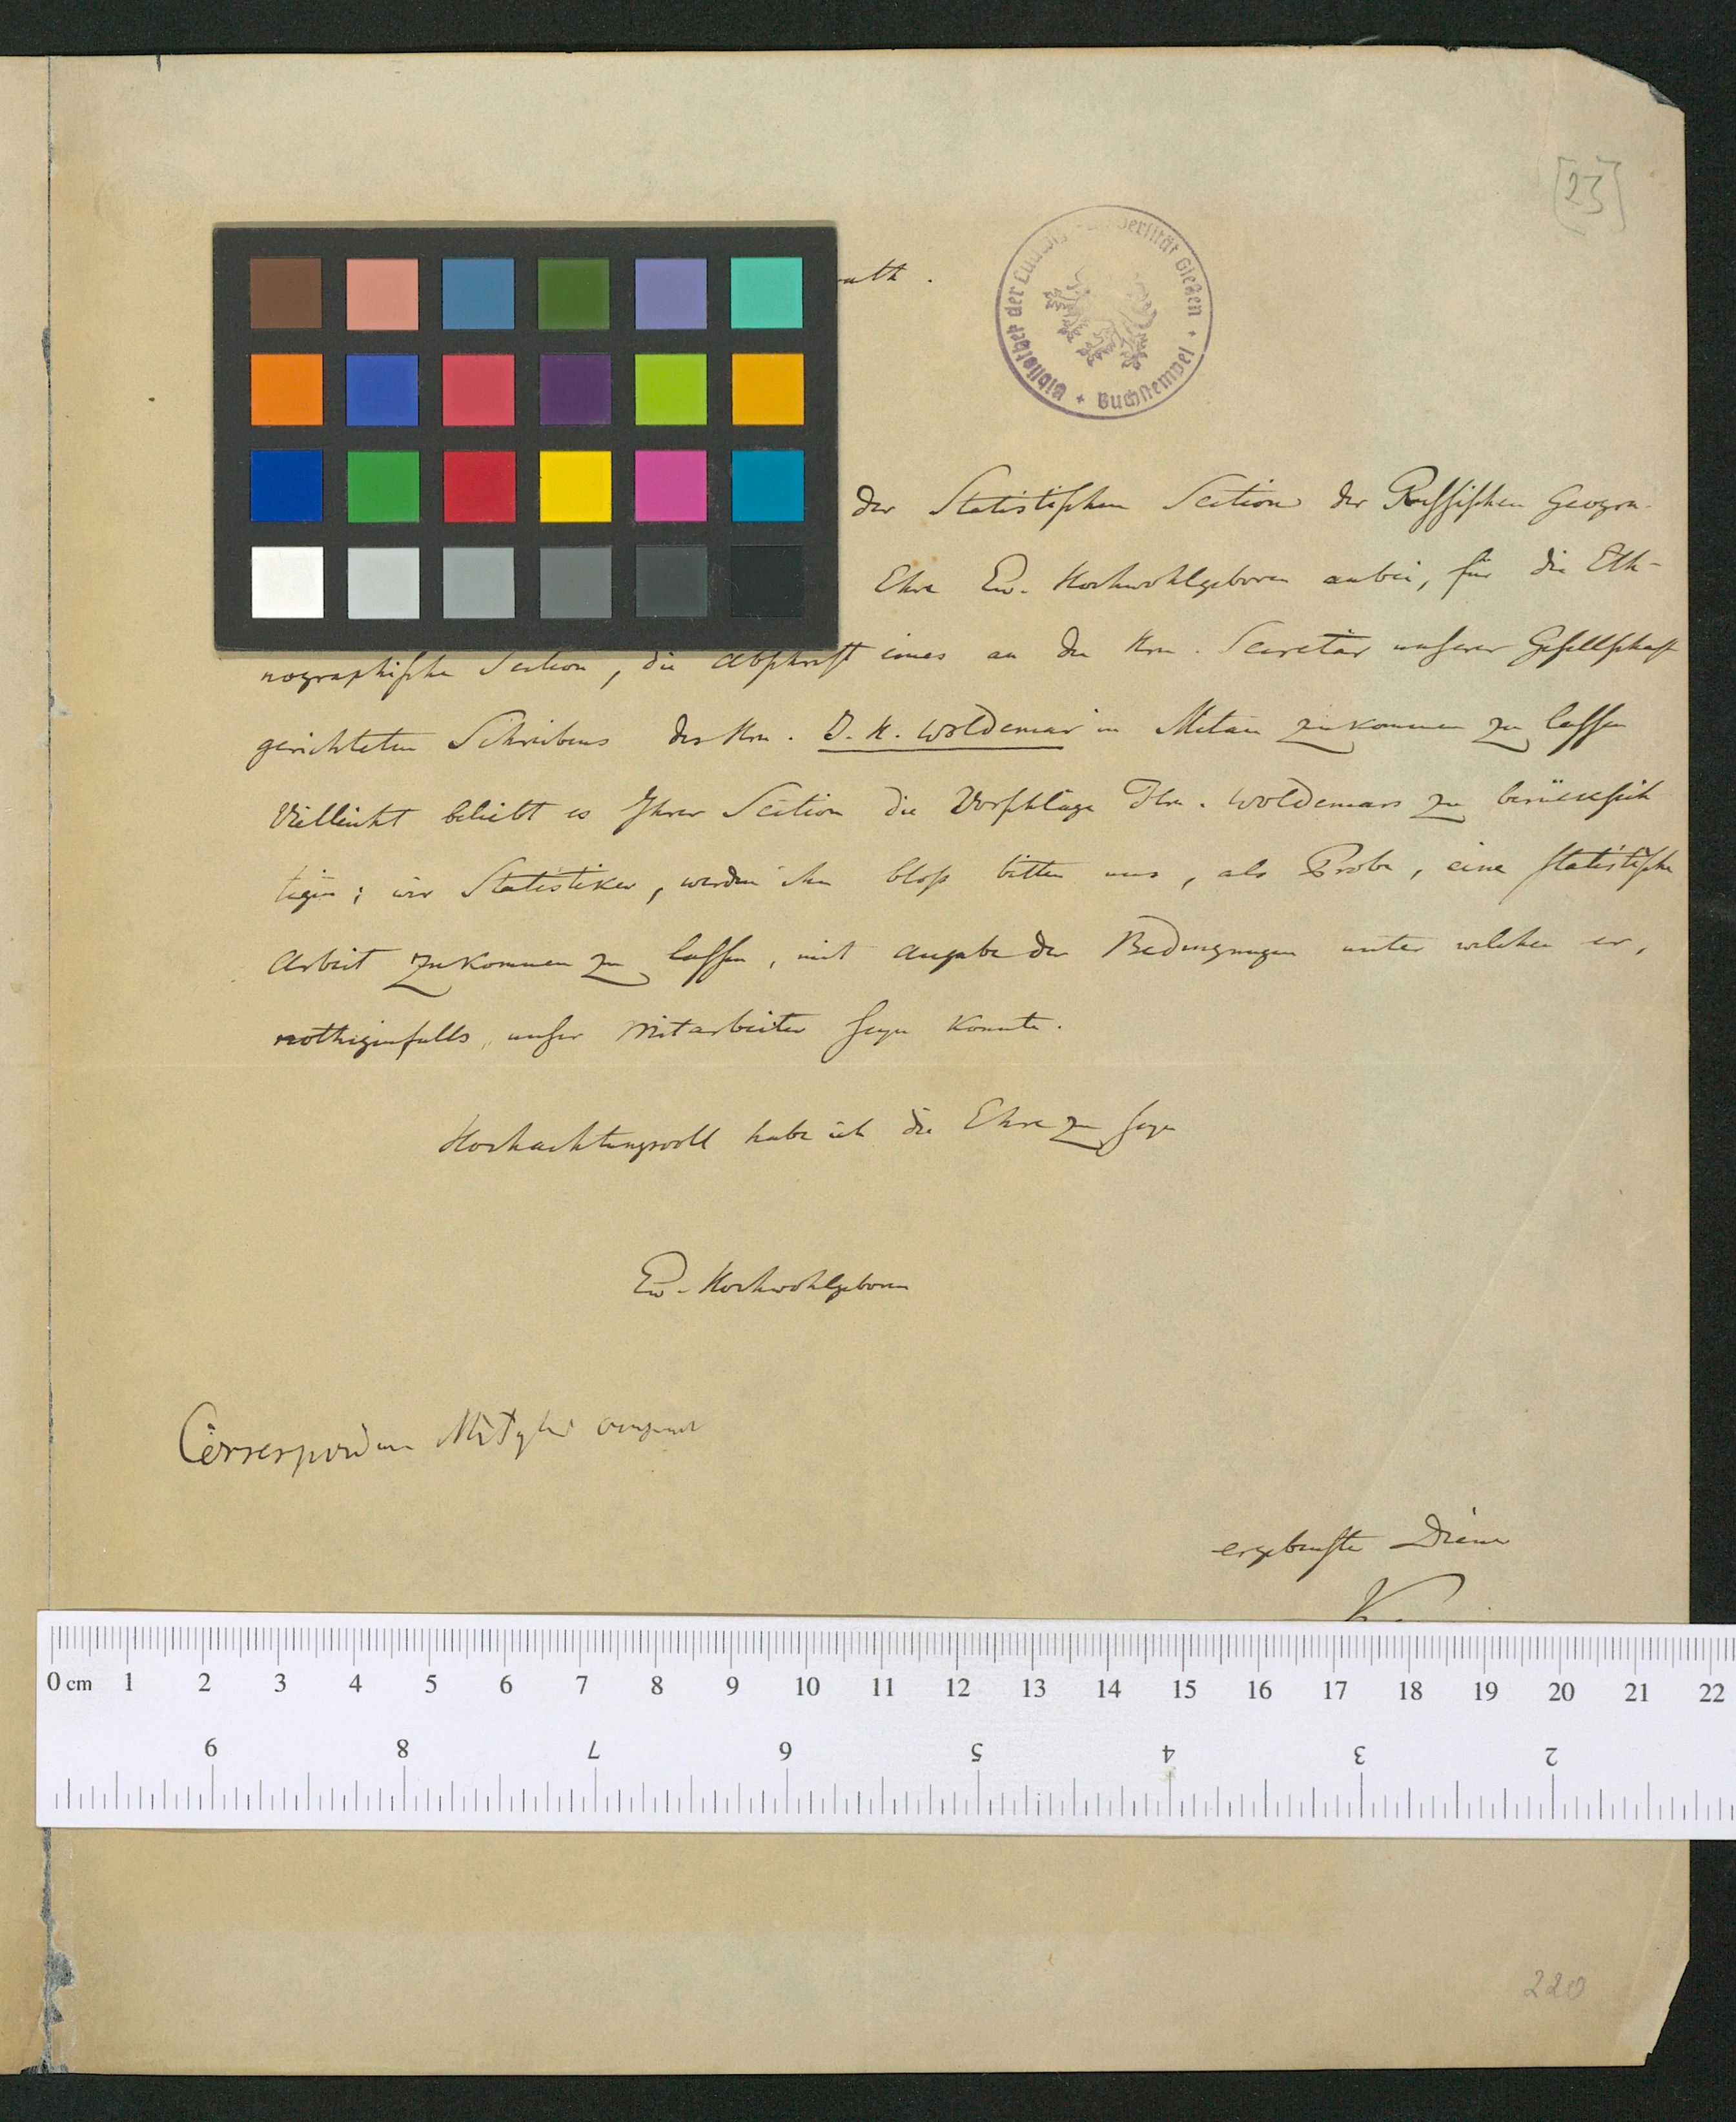 [23]
Bibliothek der Ludwigs-Universität Gießen + Buchstempel +
rath.
der Statistischen Section der Russischen Geogra-
Ehre Ew. Hochwohlgeboren anbei, für die Eth-
nographische Section, die Abschrift eines an den Hrn. Secretär unserer Gesellschaft
gerichteten Schreibens des Hrn. D. H. Woldemar in Mitau zukommen zu lassen
Vielleicht beliebt es Ihrer Section die Vorschläge Hrn. Woldemars zu berücksich
tigen; wir Statistiker, werden ihn bloss bitten uns, als Probe, eine statistische
Arbeit zukommen zu lassen, mit Angabe der Bedingungen unter welchen er,
nothigenfalls, unser Mitarbeiter seyn konnte.
Hochachtungsvoll habe ich die Ehre zu seyn
Ew. Hochwohlgeboren
Mitglied
ergebenster Diener
0 cm 1 2 3 4 5 6 7 8 9 10 11 12 13 14 15 16 17 18 19 20 21 22
9 8 7 6 5 4 3 2
220